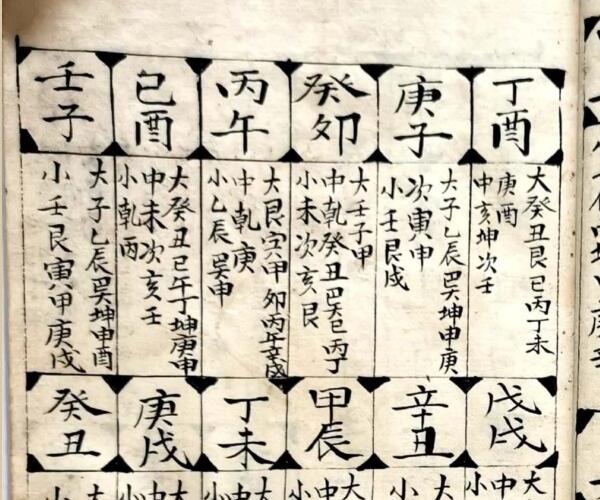 丁酉
大癸丑艮巳丙丁未
庚酉
中亥坤次壬
庚子
大子乙辰巽坤申庚
次寅申
小壬艮戌
癸卯
大壬子甲
中乾癸丑巽巳丙丁
小未次亥艮
丙午
大艮寅甲卯丙午辛戌
中乾庚
小乙辰巽申
己酉
大癸丑巳午丁坤庚申
中未次亥壬
小乾丙
壬子
大子乙辰巽坤申酉
小壬艮寅甲庚戌
戊戌
大
中
小
辛丑
大
中
小
甲辰
大
中
小
丁未
大
中
小
庚戌
大
中
小
癸丑
大
小